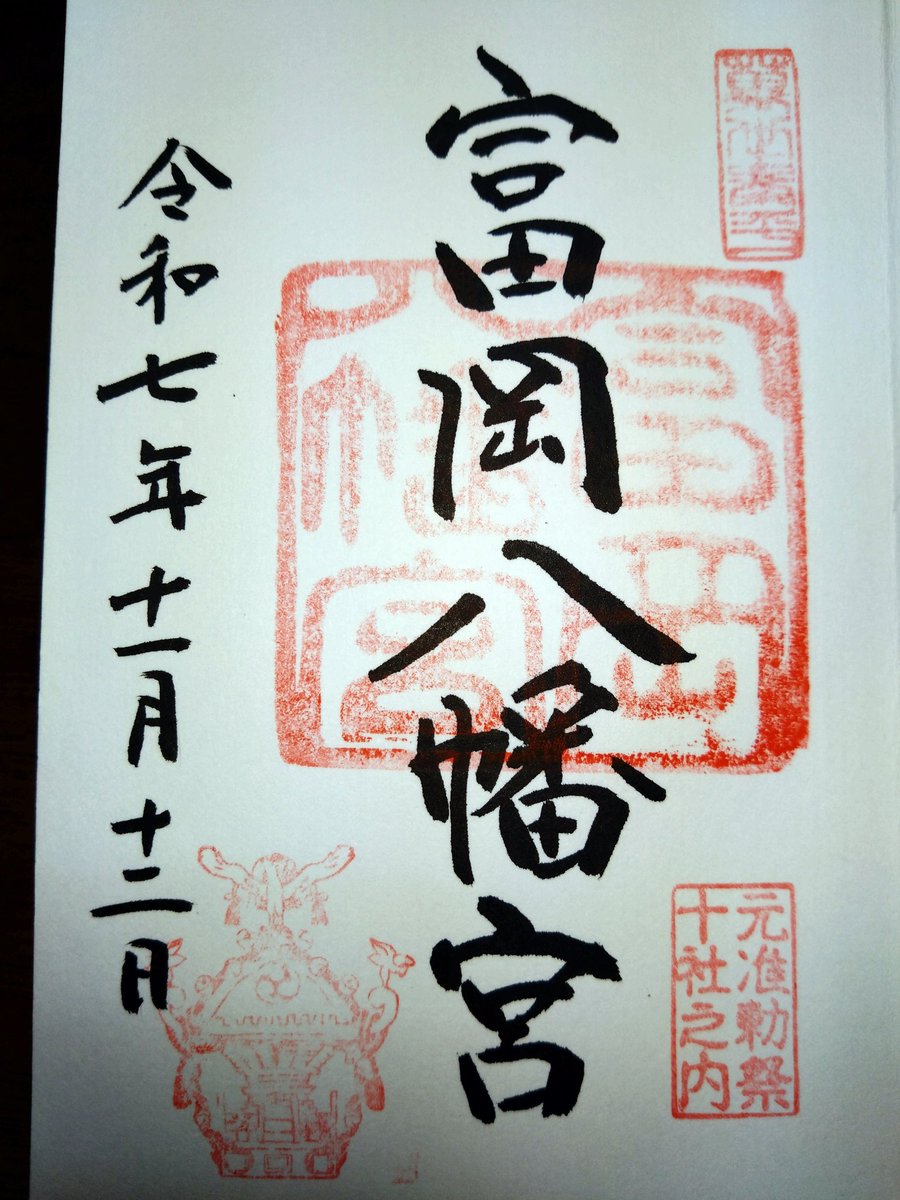 元准勅祭
十社之内
富岡八幡宮
富岡
八幡宮
令和七年十一月十二日